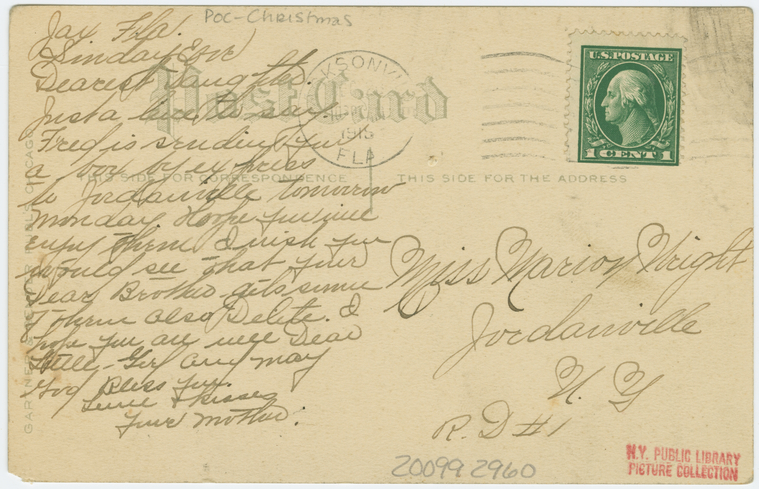 Poc-Christmas
Jax Fla.
Sunday Eve
Dearest Daughter
Just a line to say
Fred is sending you
a box by express
to Jordanville tomorrow
Monday Hope you will
enjoy them I wish you
would see that your
Dear Brother gets some
of them also Delite. I
hope you are well Dear
Girl and may
God Bless you.
Love & kisses
Your Mother.
Post Card
1915
FLA
U.S. POSTAGE
1 CENT 1
THIS SIDE FOR CORRESPONDENCE
THIS SIDE FOR THE ADDRESS
Miss Marion Wright
Jordanville
N. Y
R. D #1
200992960
N.Y. PUBLIC LIBRARY
PICTURE COLLECTION